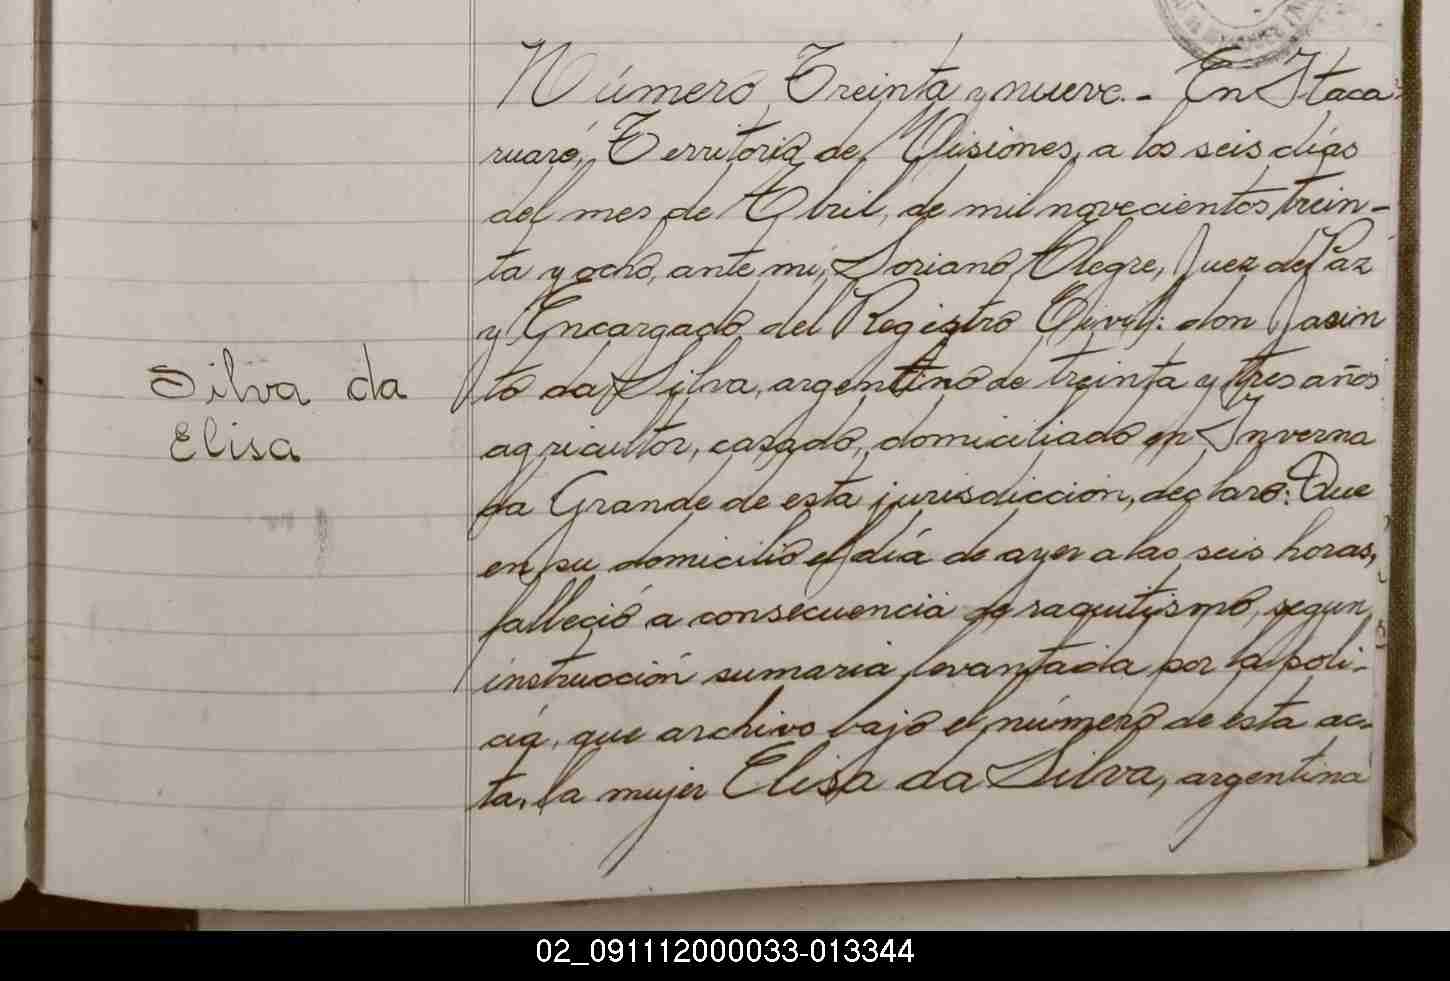 Número Treinta y nueve.- En Itaca-
ruaré, Territorio de Misiones, a los seis días
del mes de Abril, de mil novecientos trein-
ta y ocho, ante mi, Soriano Alegre, Juez de Paz
y Encargado del Registro Civil: don Jacin
to da Silva, argentino de treinta y tres años
agricultor, casado, domiciliado en Inverna
da Grande de esta jurisdicción, declaró: Que
en su domicilio el día de ayer a las seis horas,
falleció a consecuencia de raquitismo, segun
instrucción sumaria levantada por la poli-
cia, que archivo bajo el número de esta ac-
ta, la mujer Elisa da Silva, argentina
Silva da
Elisa
02_091112000033-013344